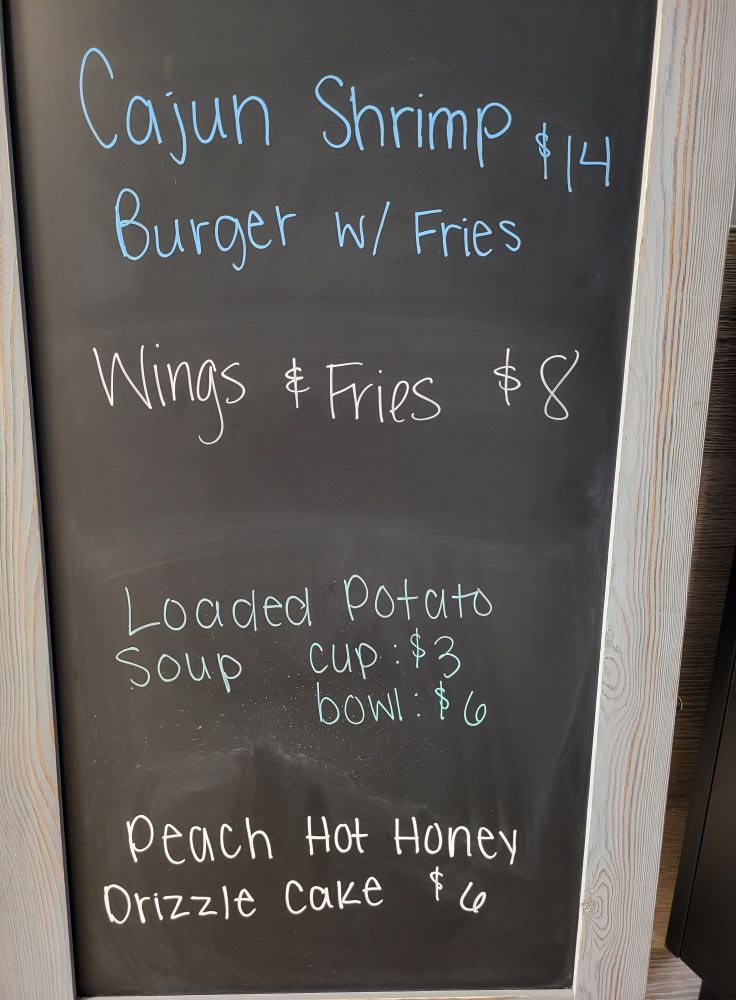 Cajun Shrimp $14
Burger w/ Fries
Wings & Fries $8
Loaded Potato
Soup cup: $3
bowl: $6
Peach Hot Honey
Drizzle Cake $6